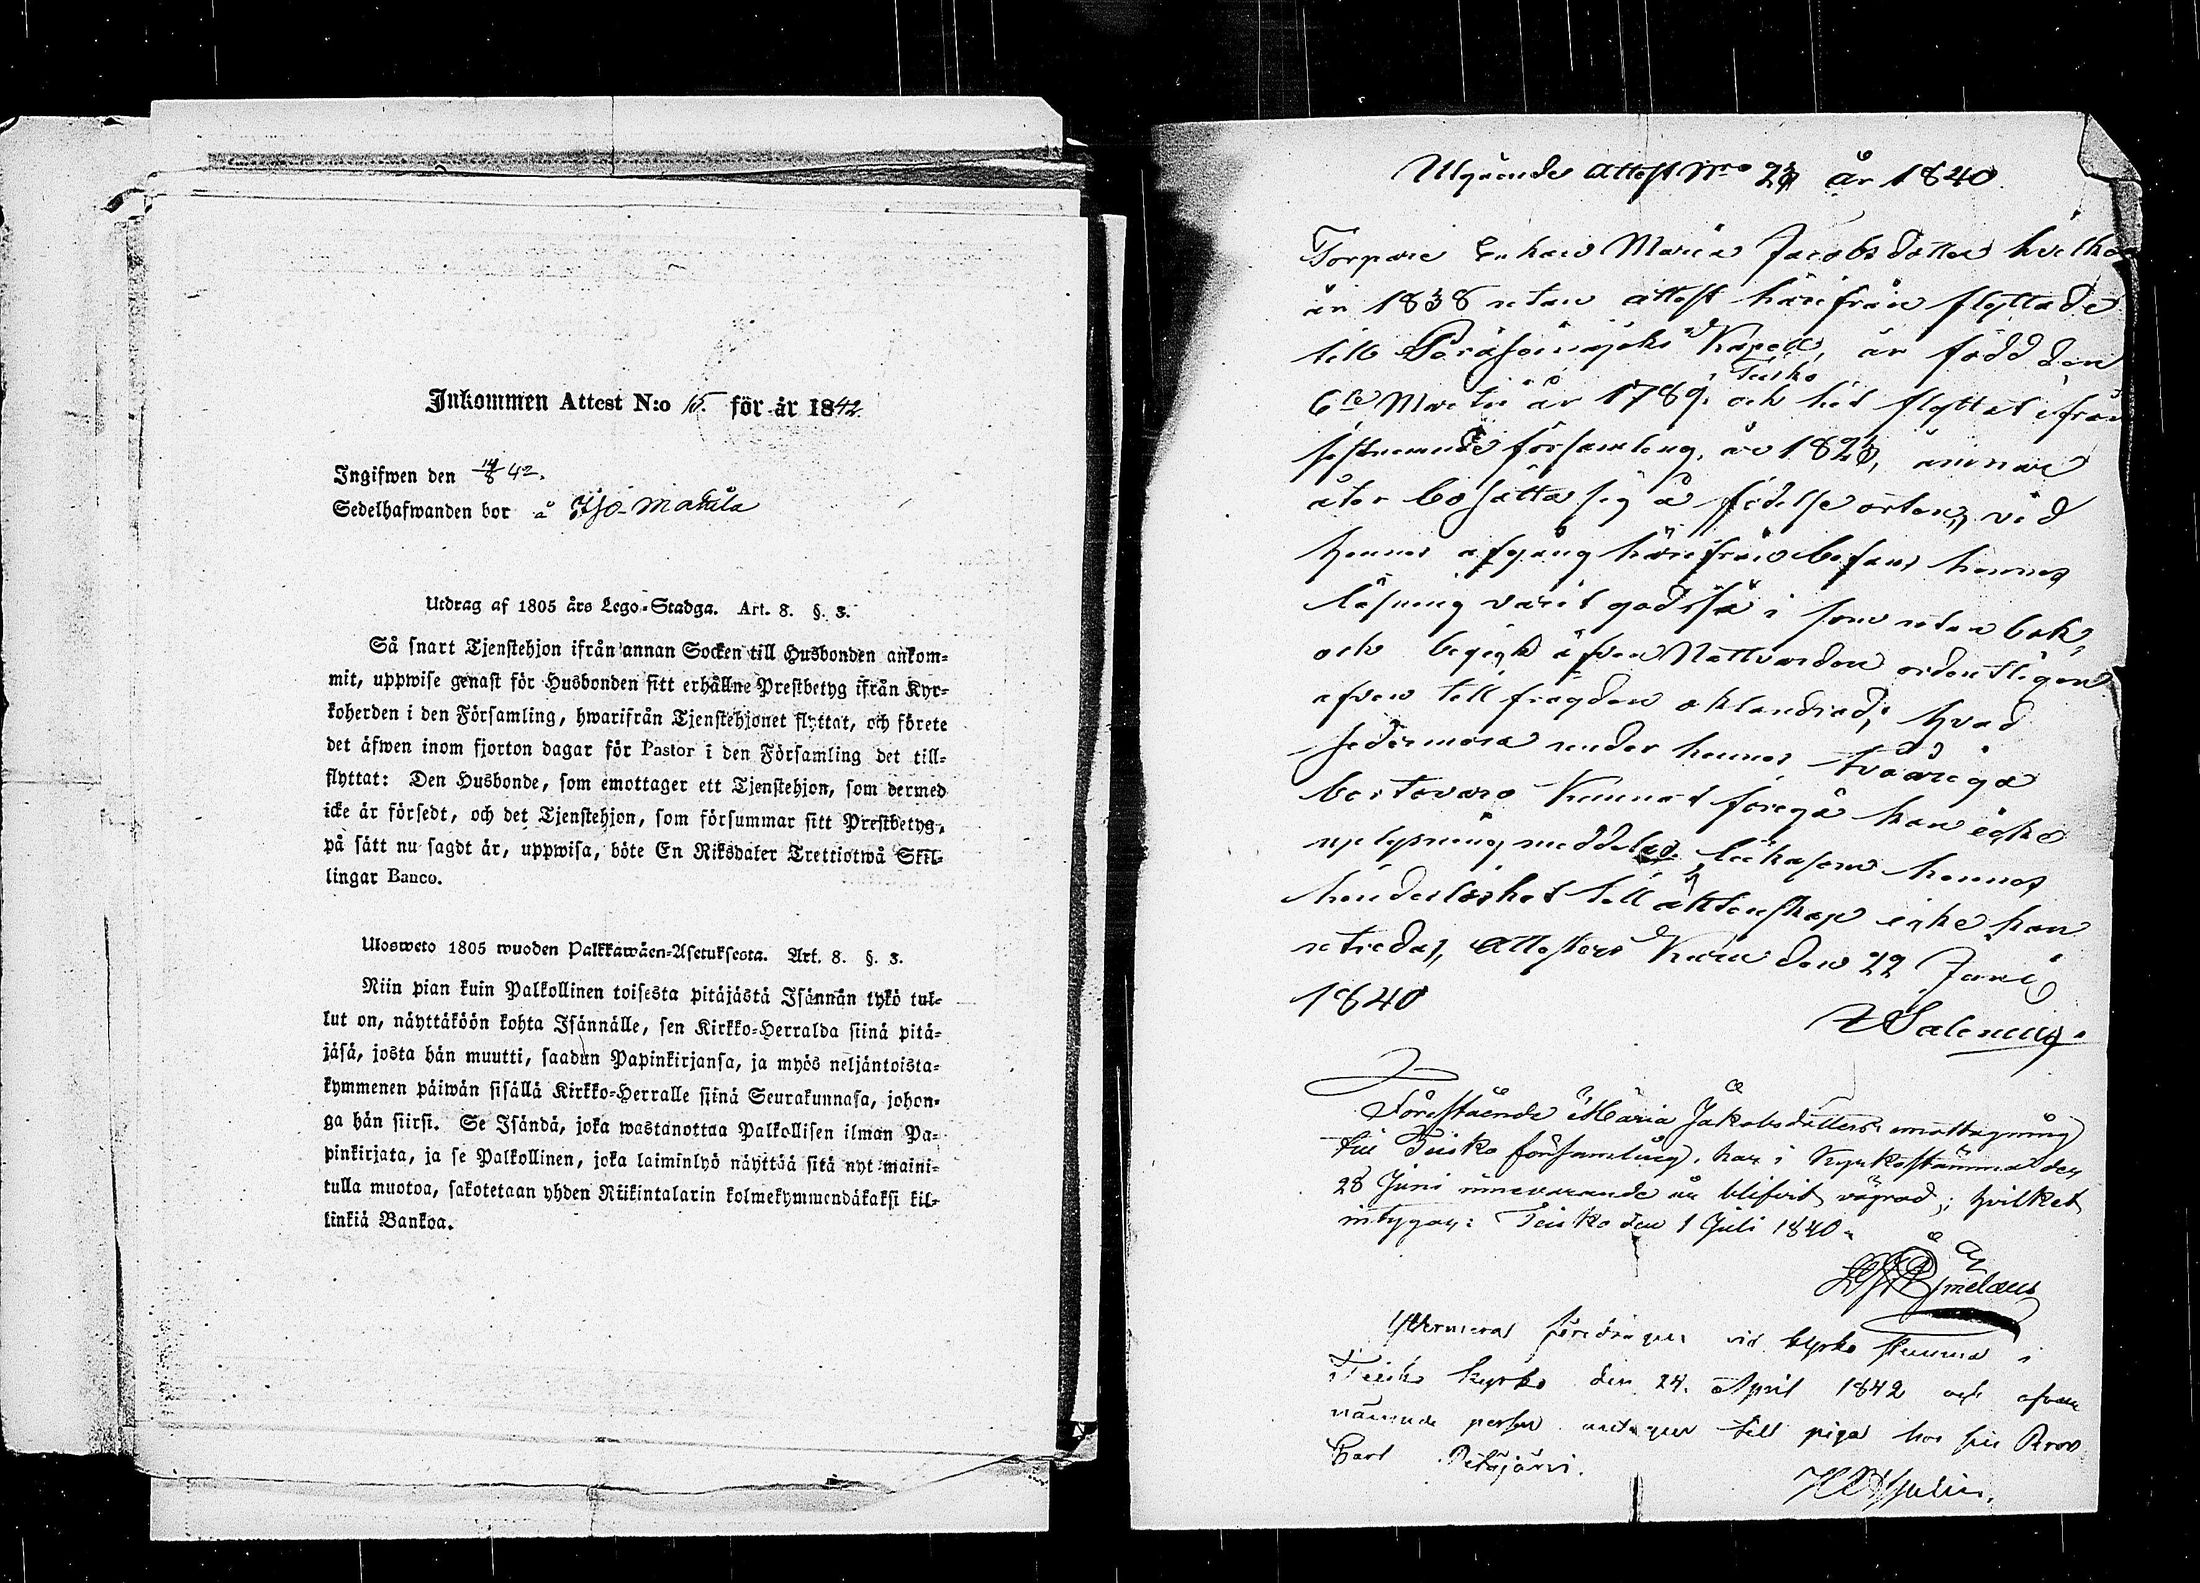 Inkommen Attest N:o 15. för år 1842
Ingifwen den 14/8 42.
Sedelhafwanden bor å Yso-Mattila
Utdrag af 1805 års Lego-Stadga. Art. 8. §. 3.
Så snart Tjenstehjon ifrån annan Socken till Husbonden ankom-
mit, uppwise genast för Husbonden sitt erhållne Prestbetyg ifrån Kyr-
koherden i den Församling, hwarifrån Tjenstehjonet flyttat, och förete
det äfwen inom fjorton dagar för Pastor i den Församling det till-
flyttat: Den Husbonde, som emottager ett Tjenstehjon, som dermed
icke är försedt, och det Tjenstehjon, som försummar sitt Prestbetyg,
på sätt nu sagdt är, uppwisa, böte En Riksdaler Trettiotwå Skil-
lingar Banco.
Ulosweto 1805 wuoden Palkkawäen-Asetuksesta. Art. 8. §. 3.
Niin pian kuin Palkollinen toisesta pitäjästä Isännän tykö tul-
lut on, näyttäköön kohta Isännälle, sen Kirkko-Herralda siinä pitä-
jäsä, josta hän muutti, saadun Papinkirjansa, ja myös neljäntoista-
kymmenen päiwän sisällä Kirkko-Herralle siinä Seurakunnasa, johon-
ga hän siirsi. Se Isändä, joka wastanottaa Palkollisen ilman Pa-
pinkirjata, ja se Palkollinen, joka laiminlyö näyttää sitä nyt maini-
tulla muotoa, sakotetaan yhden Riikintalarin kolmekymmendäkaksi kil-
linkiä Bankoa.
Utgående Attest Nro år 1840.
Torpare Enkan Maria Jacobsdotter hvilken
år 1838 utan attest härifrån flyttade
till Peräseinäjoki Kapell, är född den
6te Martii år 1789 i Teisko och hit flyttat ifrån
sistnemnde församling, år ämnar
åter bosätta sig å födelse orten, vid
hennes afgång härifrån befans hennes
läsning varit god så i som utan bok,
och begick äfven Nattvarden ordentligen
äfven till frägden oklandrad; hvad
sedermera under hennes tvååriga
bortovaro kunnat föregå kan icke
uplysning meddelas likasom hennes
hinderlöshet till äktenskap icke kan
utredas, Attesteras den 22 Junii
1840
Salenius.
Förestående Maria Jakobsdotters emottagning
till Teisko församling, har i Kyrkostämma den
28 Juni innevarande år blifvit vägrad; hvilket
intygar: Teisko den 1 Juli 1840.
Yttermera föredragen vid kyrko stämma i
Teisko Kyrka den 24. April 1842 och ofvan
nämnde person antagen till piga hos sin Bror
Carl Petäjärvi.